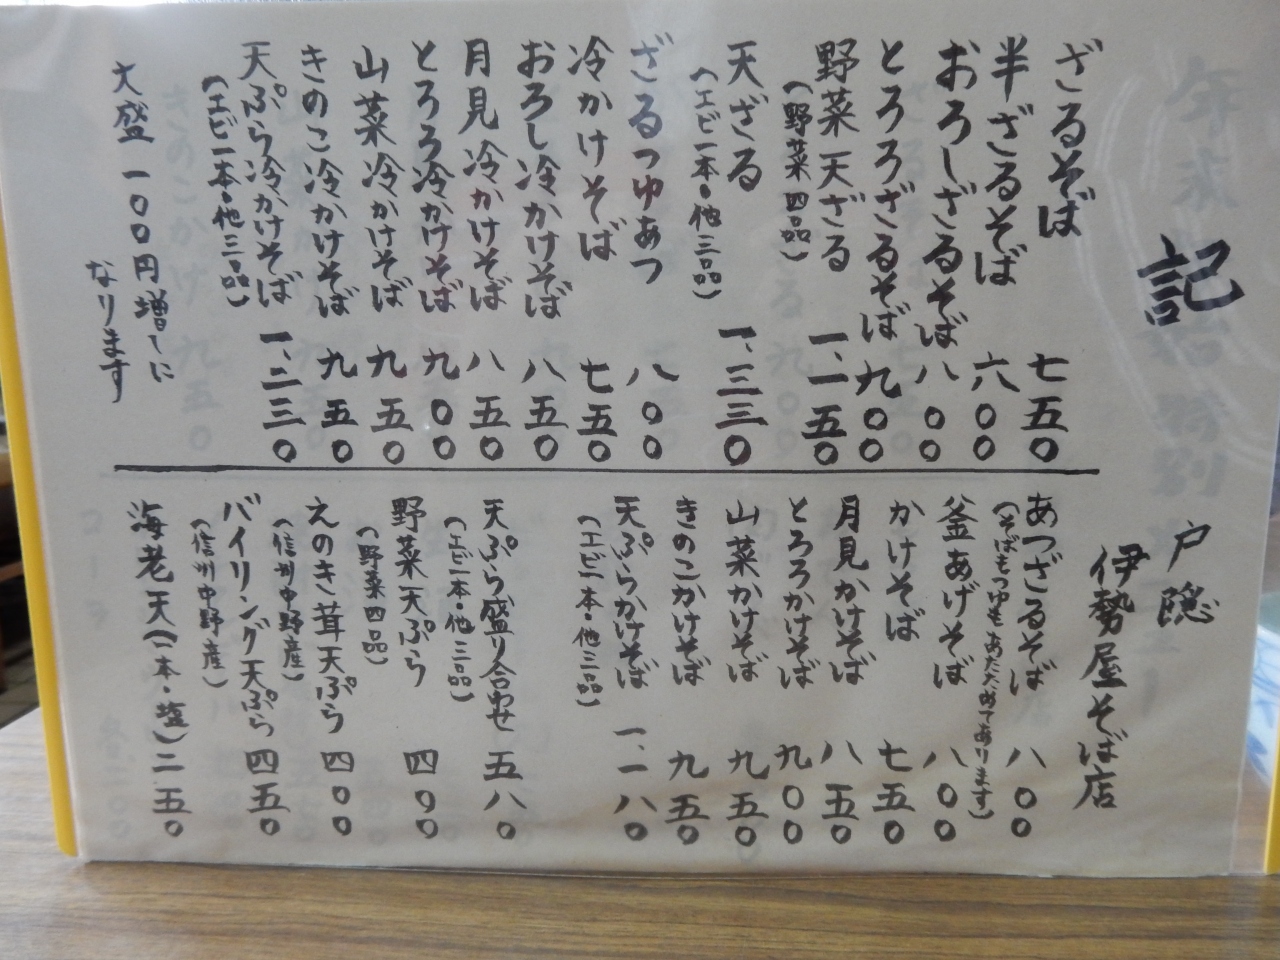 記
戸隠
伊勢屋そば店
ざるそば 七五〇
半ざるそば 六〇〇
おろしざるそば 八〇〇
とろろざるそば 九〇〇
野菜天ざる 一、一五〇
(野菜四品)
天ざる 一、三三〇
(エビ一本・他三品)
ざるつゆあつ 八〇〇
冷かけそば 七五〇
おろし冷かけそば 八五〇
月見冷かけそば 八五〇
とろろ冷かけそば 九〇〇
山菜冷かけそば 九五〇
きのこ冷かけそば 九五〇
天ぷら冷かけそば 一、三三〇
(エビ一本・他三品)
大盛一〇〇円増しに
なります
あつざるそば 八〇〇
(そばもつゆもあたためてあります)
釜あげそば 八〇〇
かけそば 七五〇
月見かけそば 八五〇
とろろかけそば 九〇〇
山菜かけそば 九五〇
きのこかけそば 九五〇
天ぷらかけそば 一、一八〇
(エビ一本・他三品)
天ぷら盛り合わせ 五八〇
(エビ一本・他三品)
野菜天ぷら 四〇〇
(野菜四品)
えのき茸天ぷら 四〇〇
(信州中野産)
バイリング天ぷら 四五〇
(信州中野産)
海老天(一本・塩) 二五〇